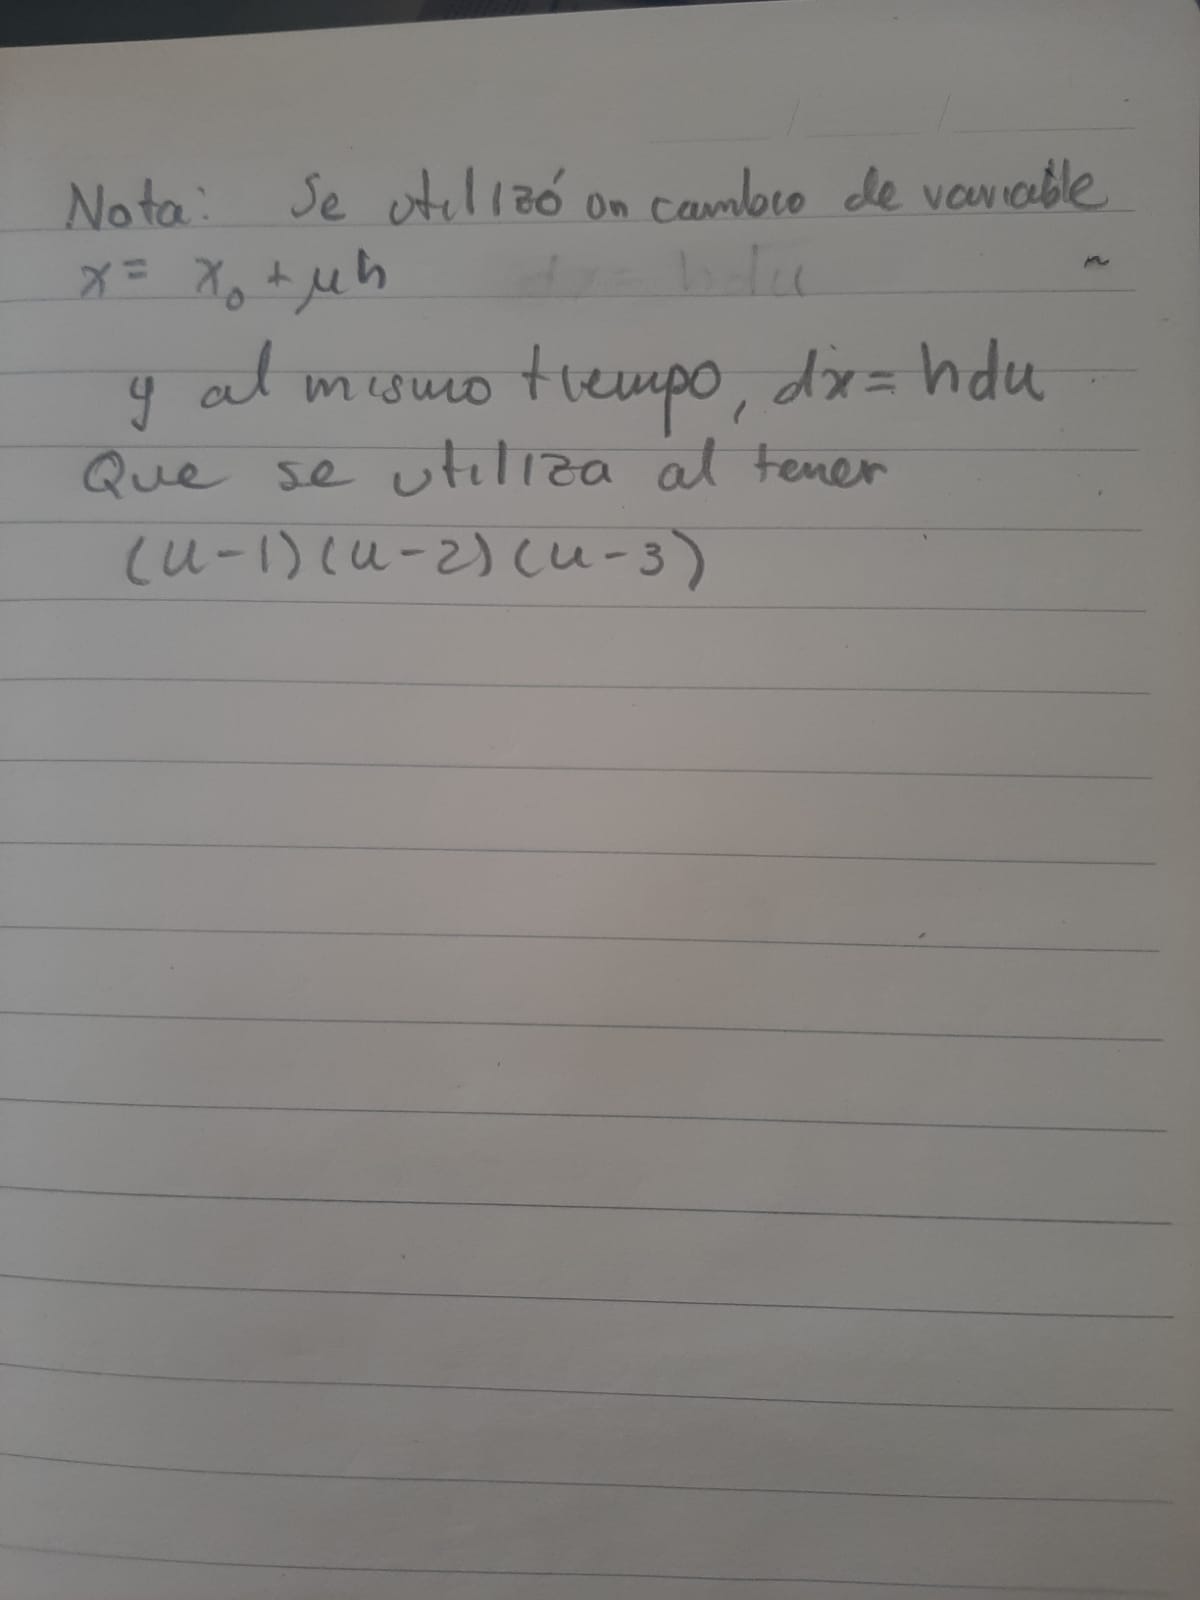 Nota: Se utilizó un cambio de variable
x = x₀ + μh
y al mismo tiempo, dx = hdu
Que se utiliza al tener
(u-1)(u-2)(u-3)